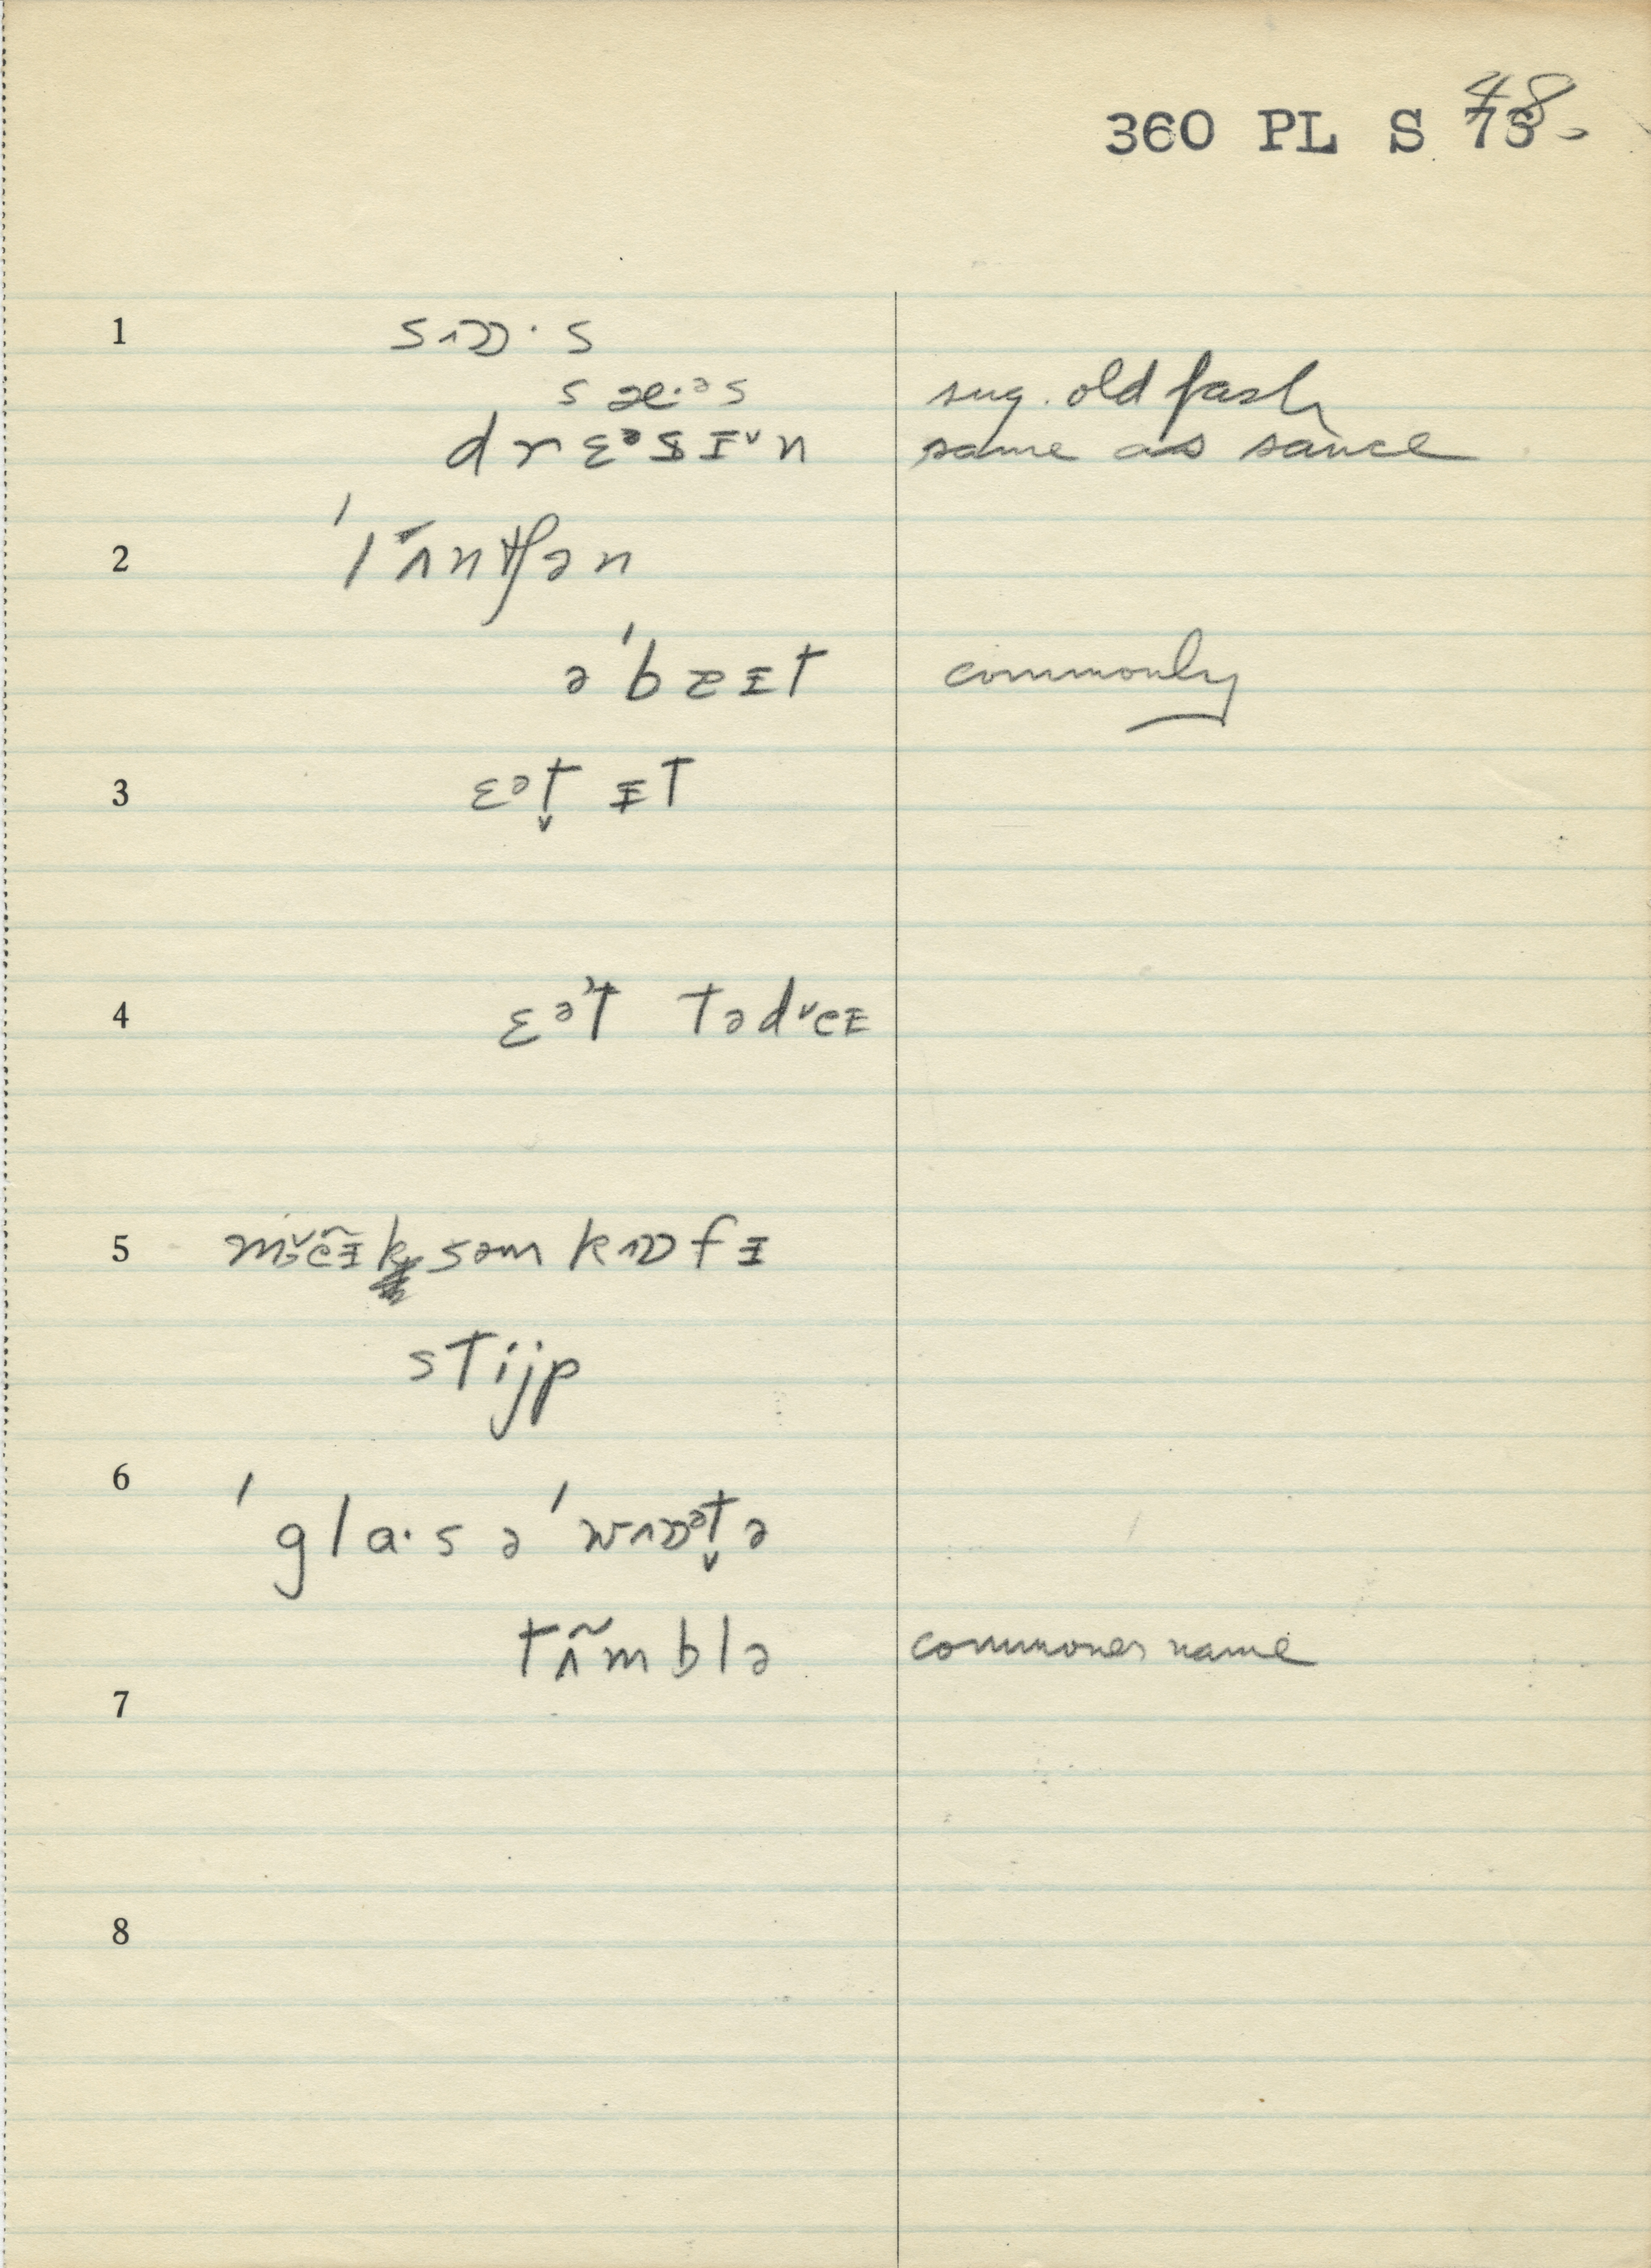 360 PL S 48
1 sɒ·s
sæ·ᵊs sug. old fash
drɛᵊsɪ˅n same as sauce
2 ˈlʌ̃ntʃən
əˈbɐɪt commonly
3 ɛᵊt̬ ɪt
4 ɛᵊt təd˅eɪ
5 səm kɒfɪ
stijp
6 ˈgla·s əˈwɒᵊt̬ə
tʌ̃mblə commoner name
7
8